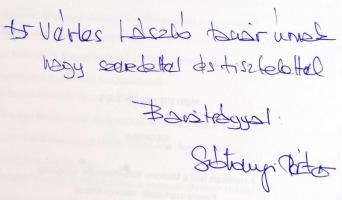 dr Vértes László tanár úrnak
nagy szeretettel és tisztelettel
Barátsággal:
Péter